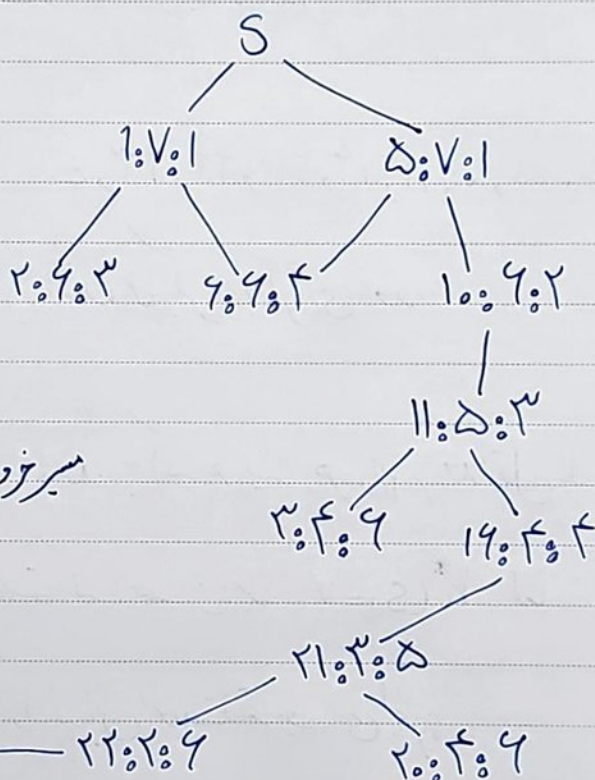 S
۱:۷:۱ ۵:۷:۱
۲:۶:۳ ۶:۶:۴ ۱۰:۶:۲
۱۱:۵:۳
مسیر خرو
۳:۴:۶ ۱۶:۴:۴
۲۱:۳:۵
۲۲:۲:۶ ۲۰:۴:۶